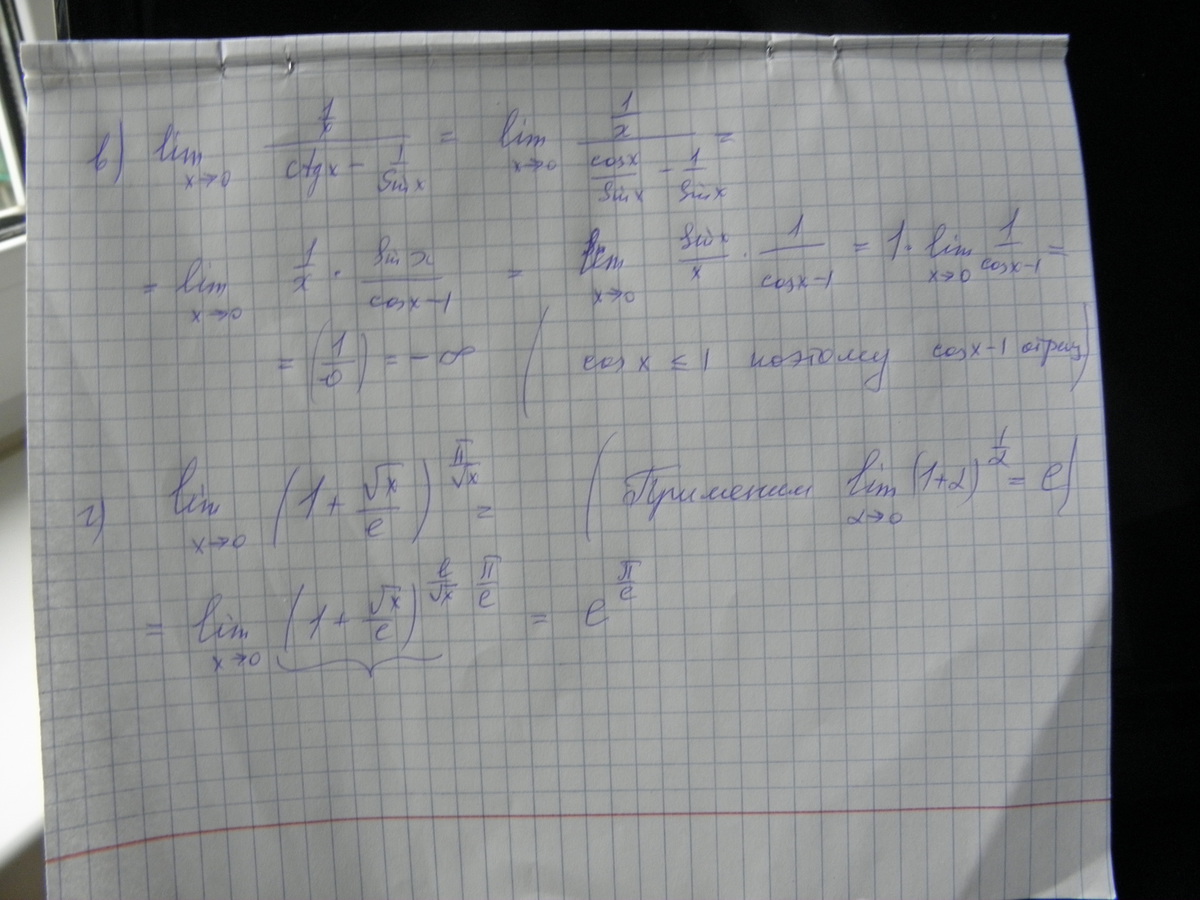 в) lim x→0 (1/x)/(ctgx − 1/sinx) = lim x→0 (1/x)/(cosx/sinx − 1/sinx) =
= lim x→0 1/x · sinx/(cosx−1) = lim x→0 sinx/x · 1/(cosx−1) = 1· lim x→0 1/(cosx−1) =
= (1/−0) = −∞ ( cosx ≤ 1 поэтому cosx−1 отриц)
г) lim x→0 (1 + √x/e)^(π/√x) = ( Применим lim α→0 (1+α)^(1/α) = e)
= lim x→0 (1 + √x/e)^(e/√x · π/e) = e^(π/e)